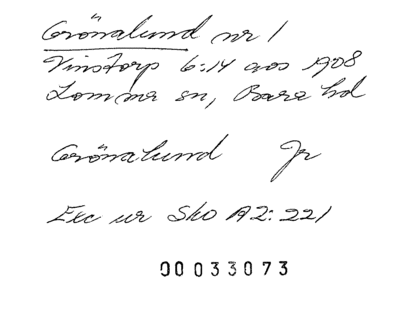 Grönalund nr 1
Vinstorp 6:14 avs 1908
Lomma sn, Bara hd
Grönalund Jr
Exc ur Sko A2:221
00033073